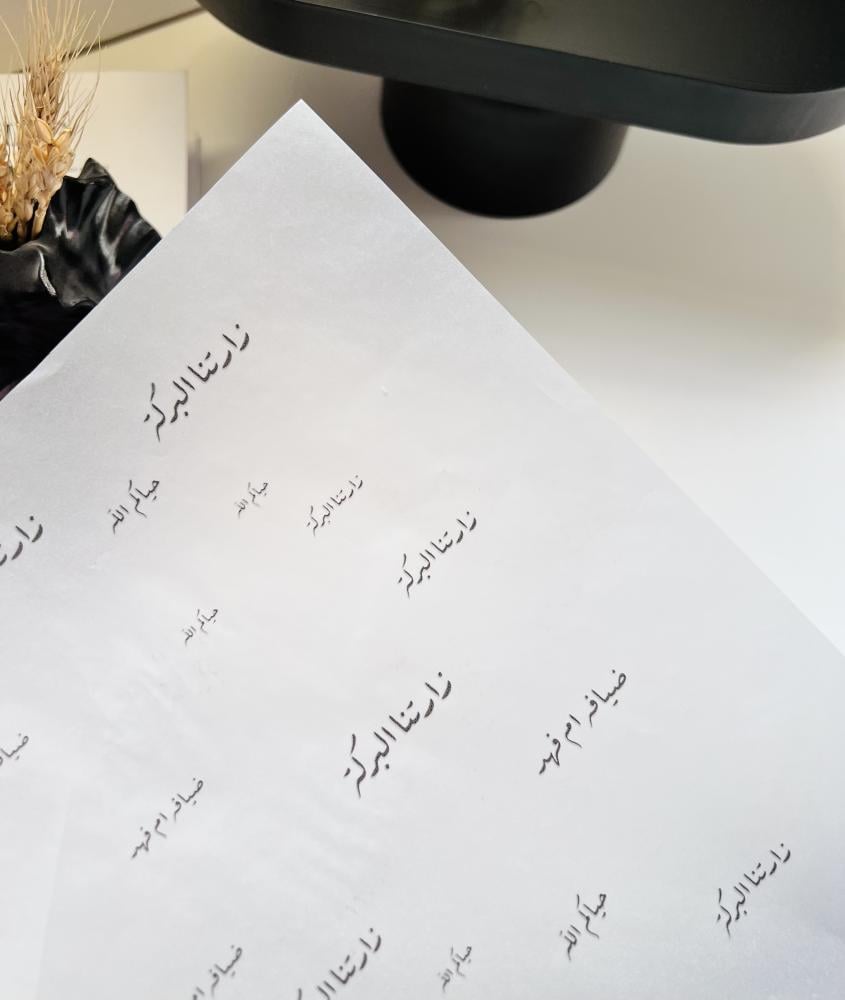 زارتنا البركة
حياكم الله
حياكم الله
زارتنا البركة
زارتنا
زارتنا البركة
حياكم الله
زارتنا البركة
ضيافه ام فهد
ضيافه ام فهد
زارتنا البركة
حياكم الله
حياكم الله
زارتنا
ضيافه ام